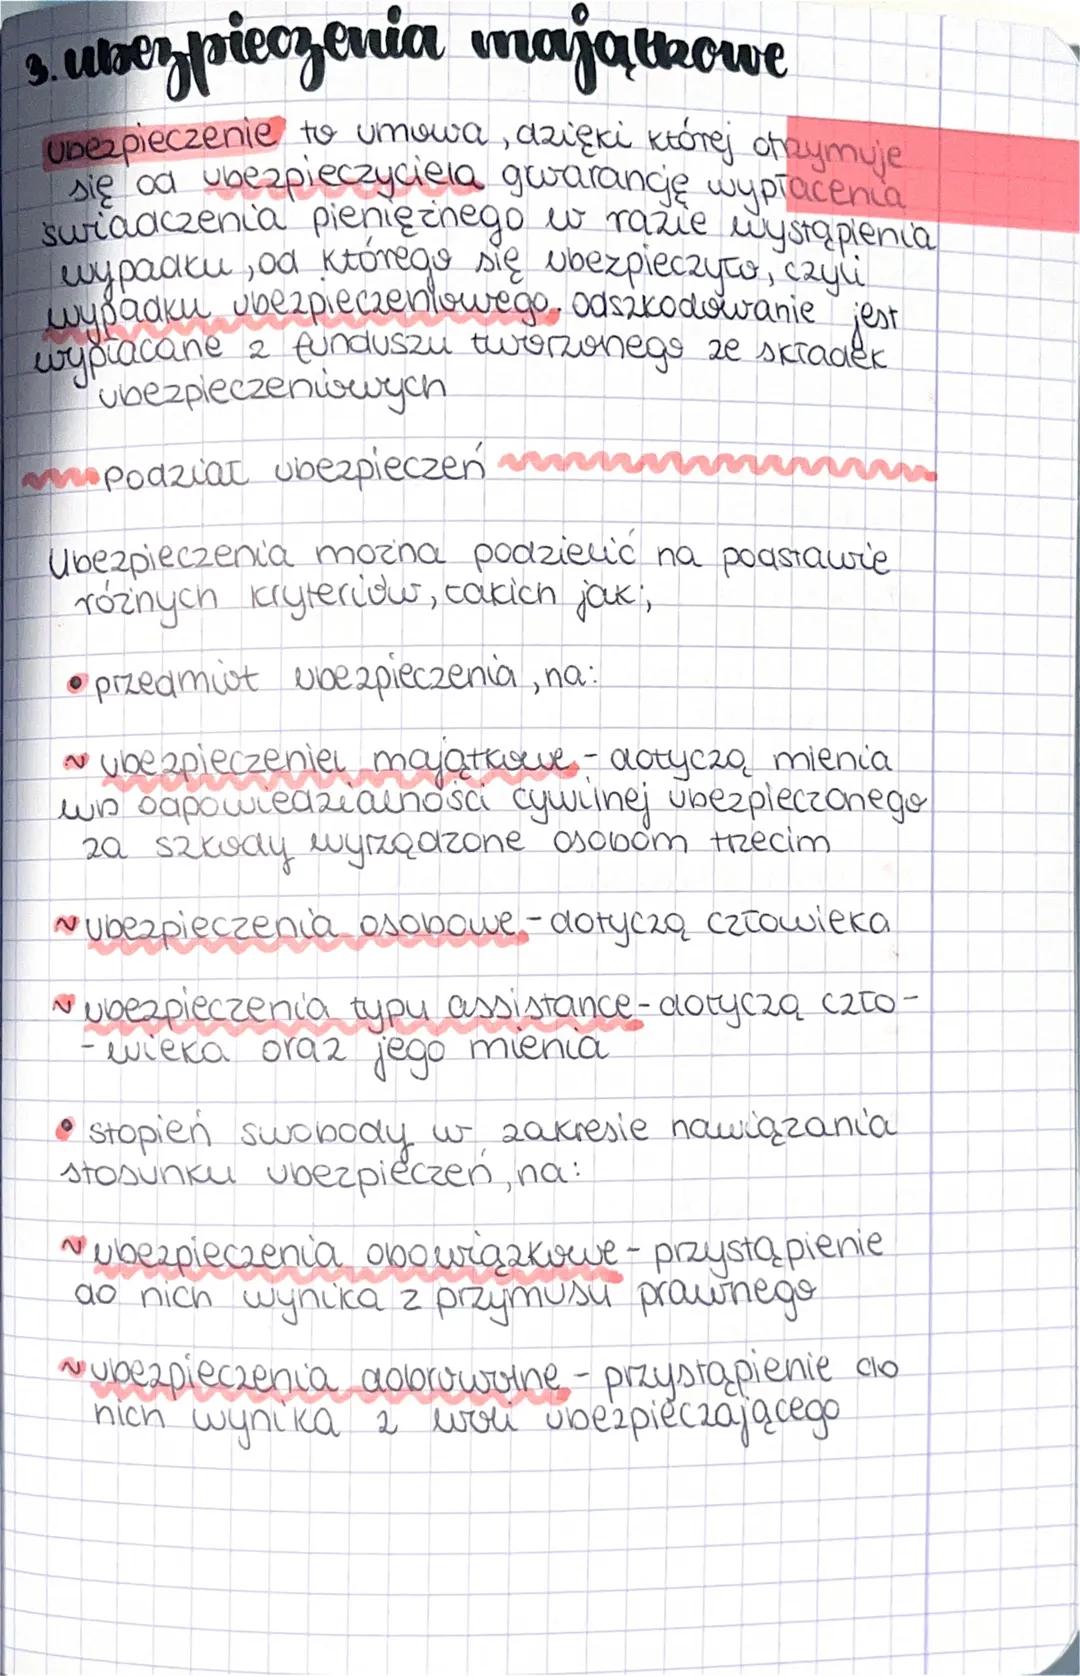 3. ubezpieczenia majątkowe
ubezpieczenie to umowa, dzięki której otrzymuje
się od ubezpieczyciela gwarancję wypłacenia
świadczenia pieniężnego w razie wystąpienia
wypadku, od którego się ubezpieczyło, czyli
wypadku ubezpieczeniowego. odszkodowanie jest
wypłacane z funduszu tworzonego ze składek
ubezpieczeniowych
podział ubezpieczeń
Ubezpieczenia można podzielić na podstawie
różnych kryteriów, takich jak:,
• przedmiot ubezpieczenia, na:
~ ubezpieczenia majątkowe - dotyczą mienia
lub odpowiedzialności cywilnej ubezpieczonego
za szkody wyrządzone osobom trzecim
~ ubezpieczenia osobowe - dotyczą człowieka
~ ubezpieczenia typu assistance - dotyczą czło-
- wieka oraz jego mienia
• stopień swobody w zakresie nawiązania
stosunku ubezpieczeń, na:
~ ubezpieczenia obowiązkowe - przystąpienie
do nich wynika z przymusu prawnego
~ ubezpieczenia dobrowolne - przystąpienie do
nich wynika z woli ubezpieczającego